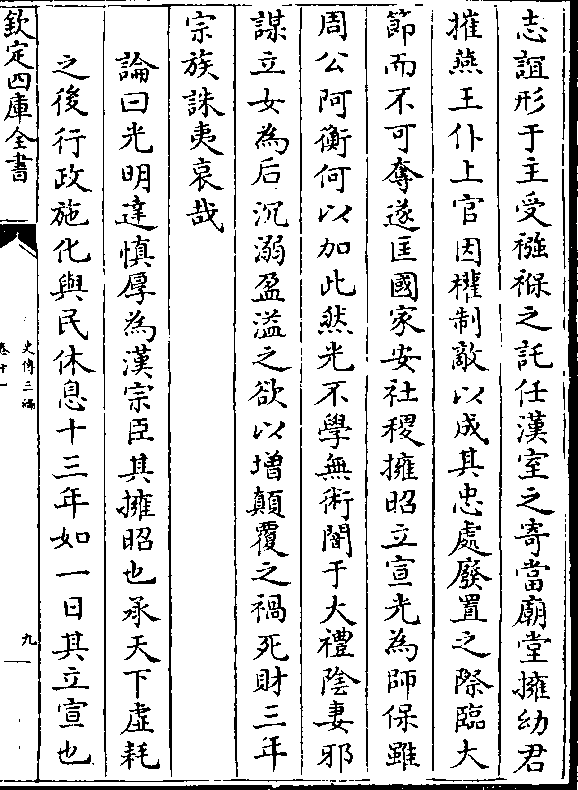 志誼形于主受襁褓之託任漢室之寄當廟堂擁幼君
摧燕王仆上官因權制敵以成其忠處廢置之際臨大
節而不可奪遂匡國家安社稷擁昭立宣光為師保雖
周公阿衡何以加此然光不學無術闇于大禮陰妻邪
謀立女為后沉溺盈溢之欲以增顛覆之禍死財三年
宗族誅夷哀哉
論曰光明達慎厚為漢宗臣其擁昭也承天下虛耗
之後行政施化與民休息十三年如一日其立宣也
欽定四庫全書
史傳三編
卷十一
九